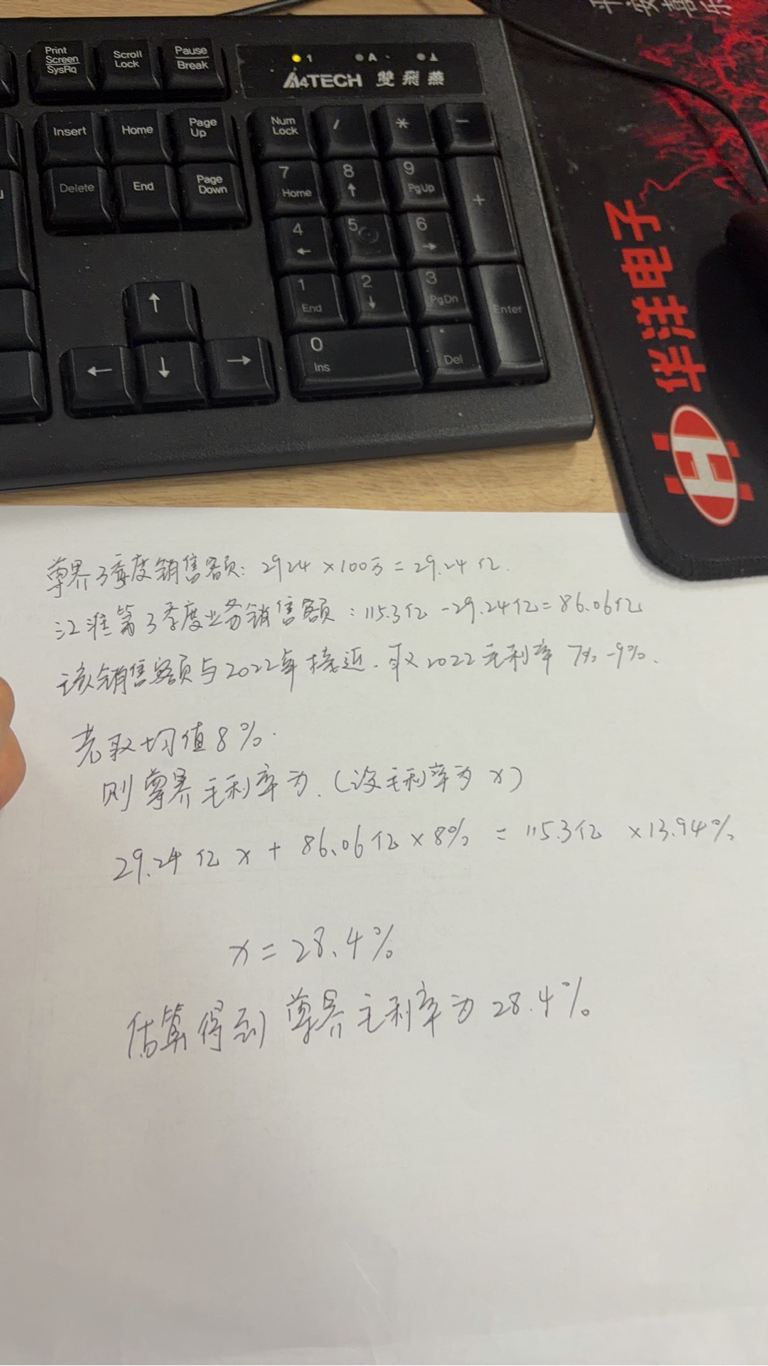 平安喜乐
Print Screen SysRq
Scroll Lock
Pause Break
1 A
A4TECH 雙飛燕
Insert
Home
Page Up
Num Lock
/
*
-
Delete
End
Page Down
7 Home
8 ↑
9 PgUp
+
4 ←
5
6 →
1 End
2 ↓
3 PgDn
Enter
0 Ins
. Del
↑
←
↓
→
华洋电子
H
尊界3季度销售额：2924×100万=29.24亿.
江淮第3季度业务销售额：115.3亿-29.24亿=86.06亿
该销售额与2022年接近.取2022毛利率 7%-9%.
若取均值8%.
则尊界毛利率为.(设毛利率为x)
29.24亿x+86.06亿×8%=115.3亿×13.94%
x=28.4%
估算得到尊界毛利率为28.4%